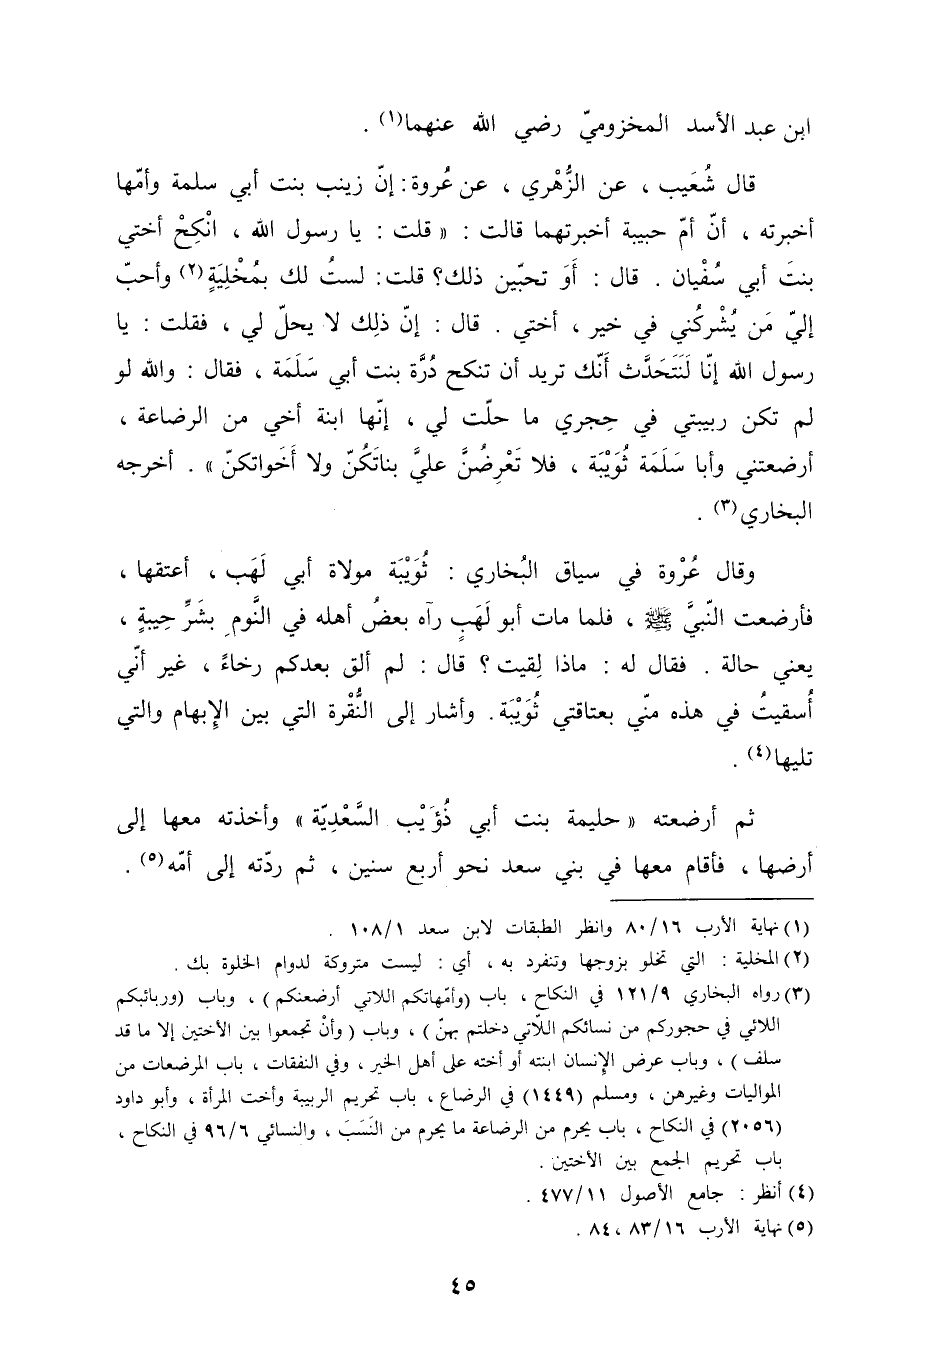 ابن عبد الأسد المخزوميّ رضي الله عنهما(١) .
قال شُعَيب ، عن الزُّهْري ، عن عُروة: إنّ زينب بنت أبي سلمة وأمّها
أخبرته ، أنّ أمّ حبيبة أخبرتهما قالت : « قلت : يا رسول الله ، انْكِحْ أختي
بنتَ أبي سُفْيان . قال : أَوَ تحبّين ذلك؟ قلت: لستُ لك بمُخْلِيَةٍ(٢) وأحبّ
إليّ مَن يُشْركُني في خير ، أختي . قال : إنّ ذلِك لا يحلّ لي ، فقلت : يا
رسول الله إنّا لَنَتَحَدَّث أنّك تريد أن تنكح دُرَّة بنت أبي سَلَمَة ، فقال : والله لو
لم تكن ربيبتي في حِجري ما حلّت لي ، إنّها ابنة أخي من الرضاعة ،
أرضعتني وأبا سَلَمَة ثُوَيْبَة ، فلا تَعْرِضُنَّ عليَّ بناتَكُنّ ولا أَخَواتكنّ » . أخرجه
البخاري(٣) .
وقال عُرْوة في سياق البُخاري : ثُوَيْبَة مولاة أبي لَهَب ، أعتقها ،
فأرضعت النّبيَّ ﷺ ، فلما مات أبو لَهَبٍ رآه بعضُ أهله في النَّومِ بشَرِّ حِيبةٍ ،
يعني حالة . فقال له : ماذا لِقيت ؟ قال : لم ألق بعدكم رخاءً ، غير أنّي
أُسقيتُ في هذه منّي بعتاقتي ثُوَيْبَة. وأشار إلى النُّقْرة التي بين الإبهام والتي
تليها(٤) .
ثم أرضعته « حليمة بنت أبي ذُؤَيْب السَّعْديّة » وأخذته معها إلى
أرضها ، فأقام معها في بني سعد نحو أربع سنين ، ثم ردّته إلى أمّه(٥) .
(١) نهاية الأرب ٨٠/١٦ وانظر الطبقات لابن سعد ١٠٨/١ .
(٢) المخلية : التي تخلو بزوجها وتنفرد به ، أي : ليست متروكة لدوام الخلوة بك .
(٣) رواه البخاري ١٢١/٩ في النكاح ، باب (وأمّهاتكم اللاتي أرضعنكم ) ، وباب (وربائبكم
اللائي في حجوركم من نسائكم اللّاتي دخلتم بهنّ ) ، وباب ( وأنْ تجمعوا بين الأختين إلا ما قد
سلف ) ، وباب عرض الإنسان ابنته أو أخته على أهل الخير ، وفي النفقات ، باب المرضعات من
المواليات وغيرهن ، ومسلم (١٤٤٩) في الرضاع ، باب تحريم الربيبة وأخت المرأة ، وأبو داود
(٢٠٥٦) في النكاح ، باب يحرم من الرضاعة ما يحرم من النَسَبَ ، والنسائي ٩٦/٦ في النكاح ،
باب تحريم الجمع بين الأختين .
(٤) أنظر : جامع الأصول ٤٧٧/١١ .
(٥) نهاية الأرب ٨٣/١٦ ، ٨٤ .
٤٥